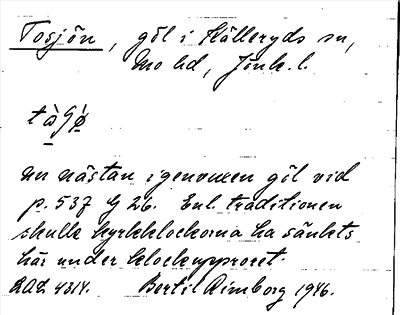 Tosjön, göl i Kålleryds sn,
Mo hd, Jönk. l.
tàɡọ̀
nu nästan igenvuxen göl vid
p. 537 G 26. Enl. traditionen
skulle kyrkklockorna ha sänkts
här under klockupproret.
RAÄ 4314. Bertil Rimborg 1946.